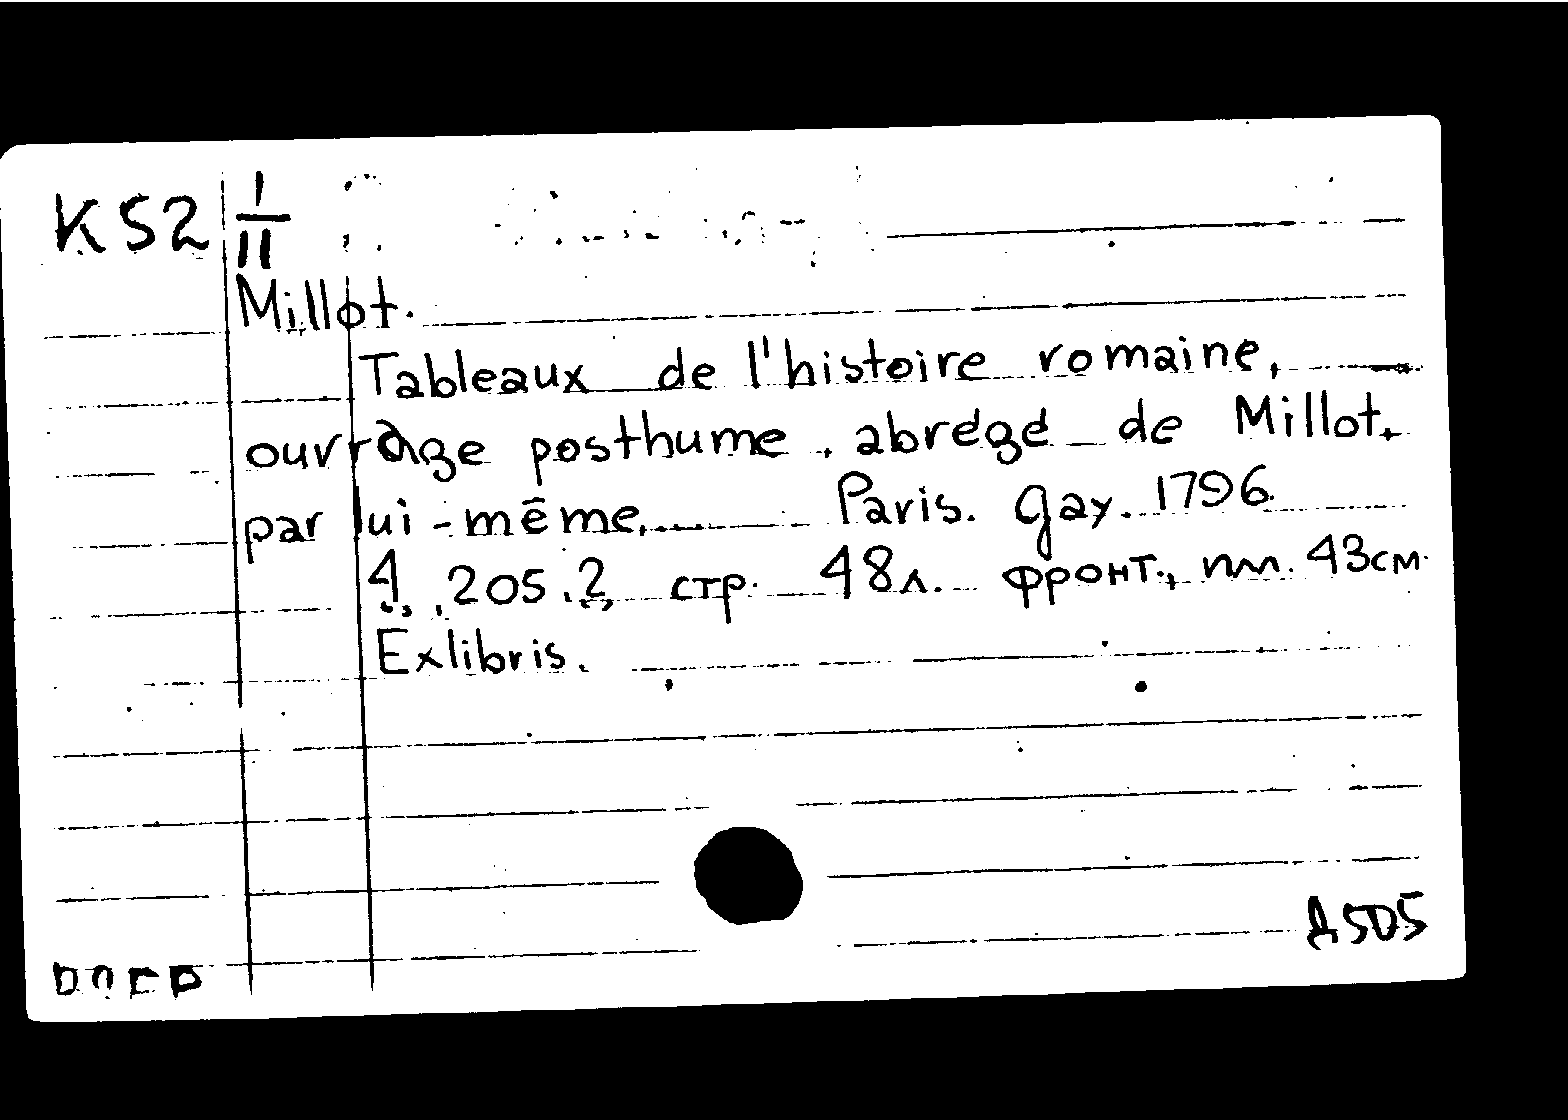 K52 I/II
Millot.
Tableaux de l'histoire romaine,
ouvrage posthume, abrégé de Millot,
par lui-même. Paris. Gay. 1796.
4, 205, 2 стр. 48 л. фронт., илл. 43 см.
Exlibris.
Д505